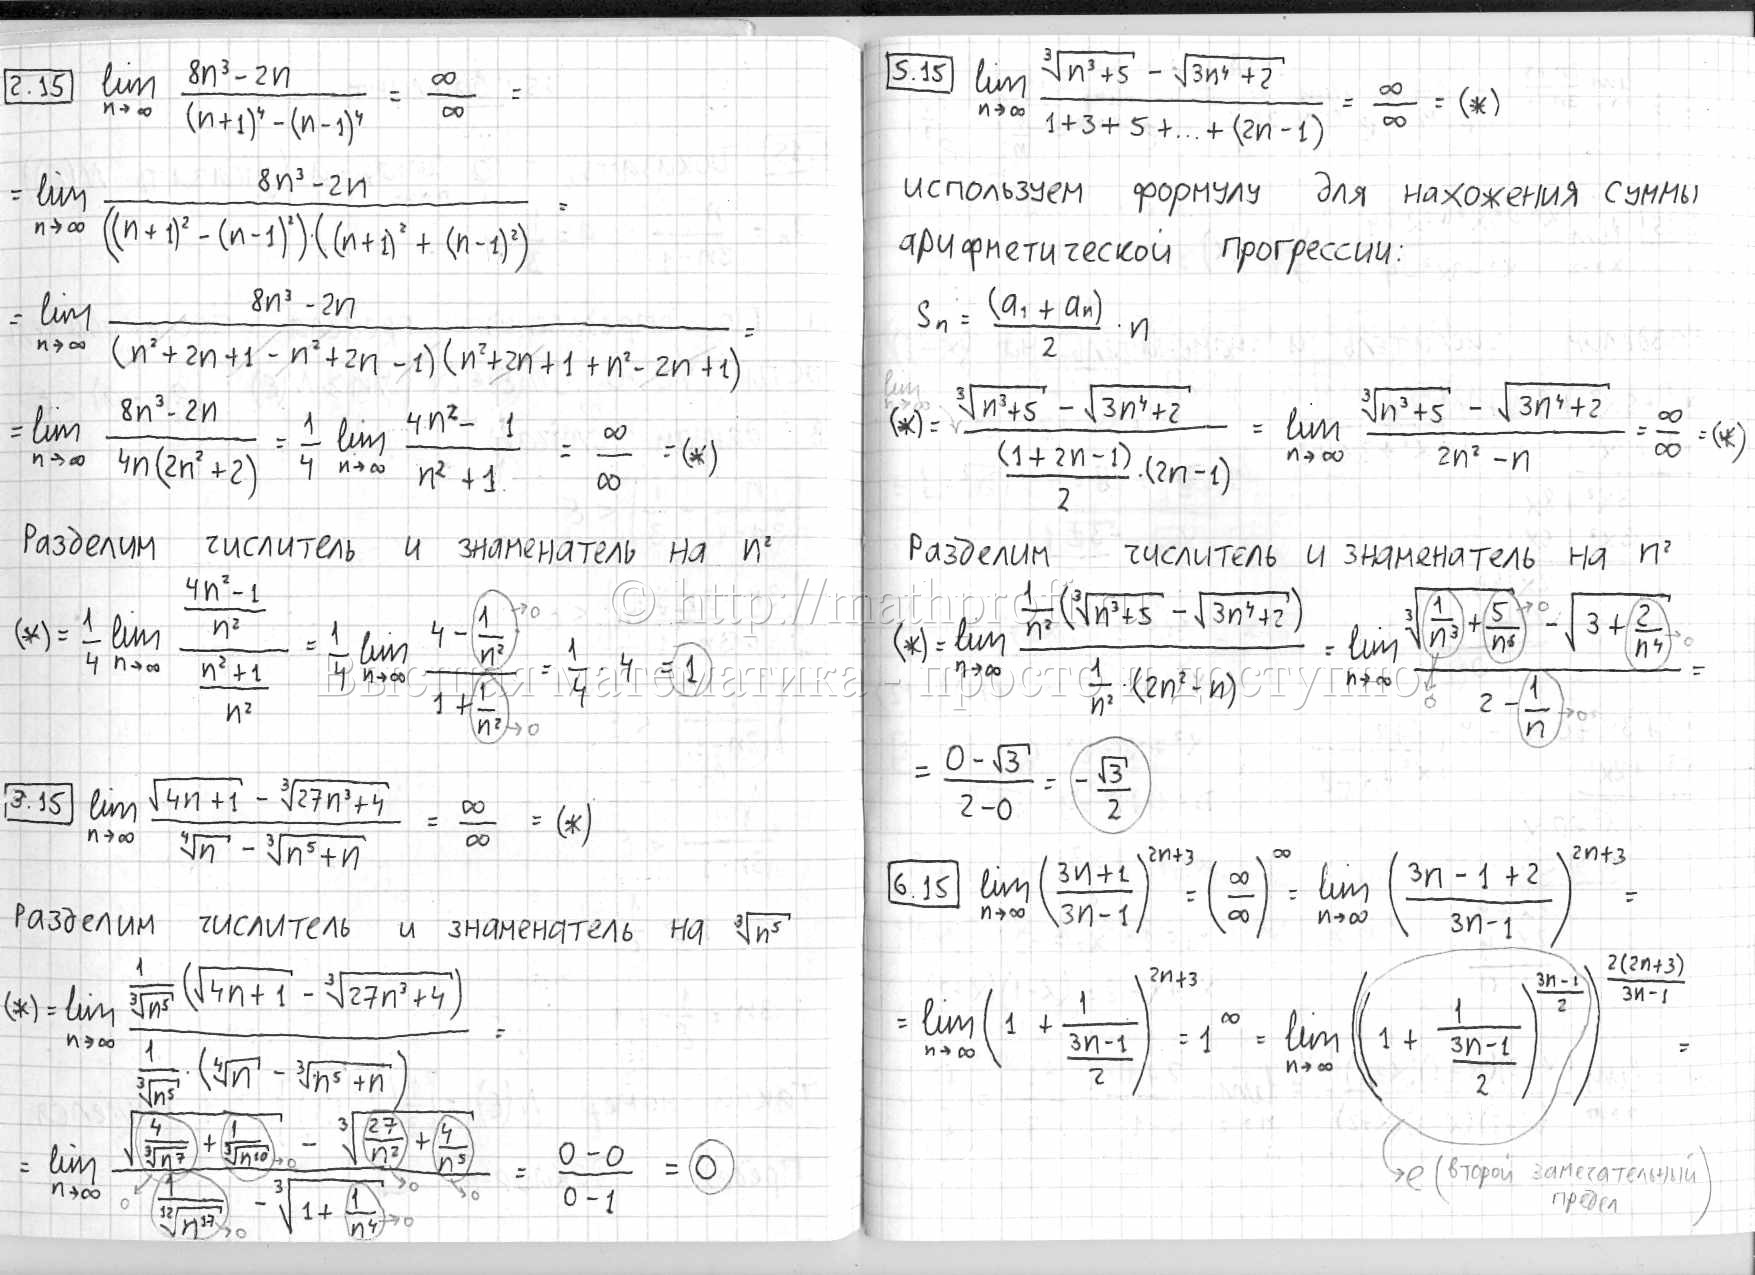 2.15 lim n→∞ (8n³ - 2n)/((n+1)⁴ - (n-1)⁴) = ∞/∞ =
= lim n→∞ (8n³ - 2n)/(((n+1)² - (n-1)²)·((n+1)² + (n-1)²)) =
= lim n→∞ (8n³ - 2n)/((n² + 2n + 1 - n² + 2n - 1)(n² + 2n + 1 + n² - 2n + 1)) =
= lim n→∞ (8n³ - 2n)/(4n(2n² + 2)) = 1/4 lim n→∞ (4n² - 1)/(n² + 1) = ∞/∞ = (*)
Разделим числитель и знаменатель на n²
(*) = 1/4 lim n→∞ ((4n² - 1)/n²)/((n² + 1)/n²) = 1/4 lim n→∞ (4 - 1/n² →0)/(1 + 1/n² →0) = 1/4 · 4 = 1
3.15 lim n→∞ (√(4n+1) - ³√(27n³+4))/(⁴√n - ³√(n⁵+n)) = ∞/∞ = (*)
Разделим числитель и знаменатель на ³√n⁵
(*) = lim n→∞ (1/³√n⁵ (√(4n+1) - ³√(27n³+4)))/(1/³√n⁵ · (⁴√n - ³√(n⁵+n))) =
= lim n→∞ (√(4/³√n⁷ →0 + 1/³√n¹⁰ →0) - ³√(27/n² →0 + 4/n⁵ →0))/(1/¹²√n¹⁷ →0 - ³√(1 + 1/n⁴ →0)) = (0-0)/(0-1) = 0
5.15 lim n→∞ (³√(n³+5) - √(3n⁴+2))/(1+3+5+...+(2n-1)) = ∞/∞ = (*)
используем формулу для нахожения суммы
арифметической прогрессии:
Sn = (a₁ + an)/2 · n
(*) = lim n→∞ (³√(n³+5) - √(3n⁴+2))/((1+2n-1)/2 · (2n-1)) = lim n→∞ (³√(n³+5) - √(3n⁴+2))/(2n² - n) = ∞/∞ = (*)
Разделим числитель и знаменатель на n²
(*) = lim n→∞ (1/n² (³√(n³+5) - √(3n⁴+2)))/(1/n² · (2n² - n)) = lim n→∞ (³√(1/n³ →0 + 5/n⁶ →0) - √(3 + 2/n⁴ →0))/(2 - 1/n →0) =
= (0 - √3)/(2 - 0) = -√3/2
6.15 lim n→∞ ((3n+1)/(3n-1))^(2n+3) = (∞/∞)^∞ = lim n→∞ ((3n-1+2)/(3n-1))^(2n+3) =
= lim n→∞ (1 + 1/((3n-1)/2))^(2n+3) = 1^∞ = lim n→∞ ((1 + 1/((3n-1)/2))^((3n-1)/2))^(2(2n+3)/(3n-1)) =
→ e (второй замечательный
предел)
© http://mathprofi
Высшая математика - просто и доступно!